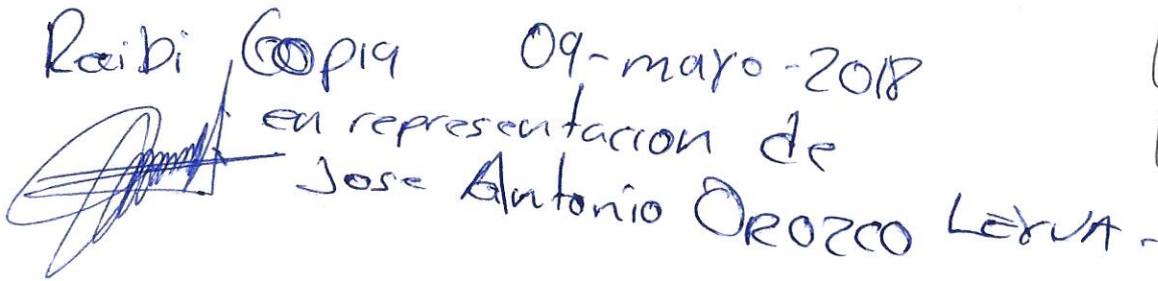 Recibi Copia 09-mayo-2018
en representacion de
Jose Antonio Orozco LEYVA.